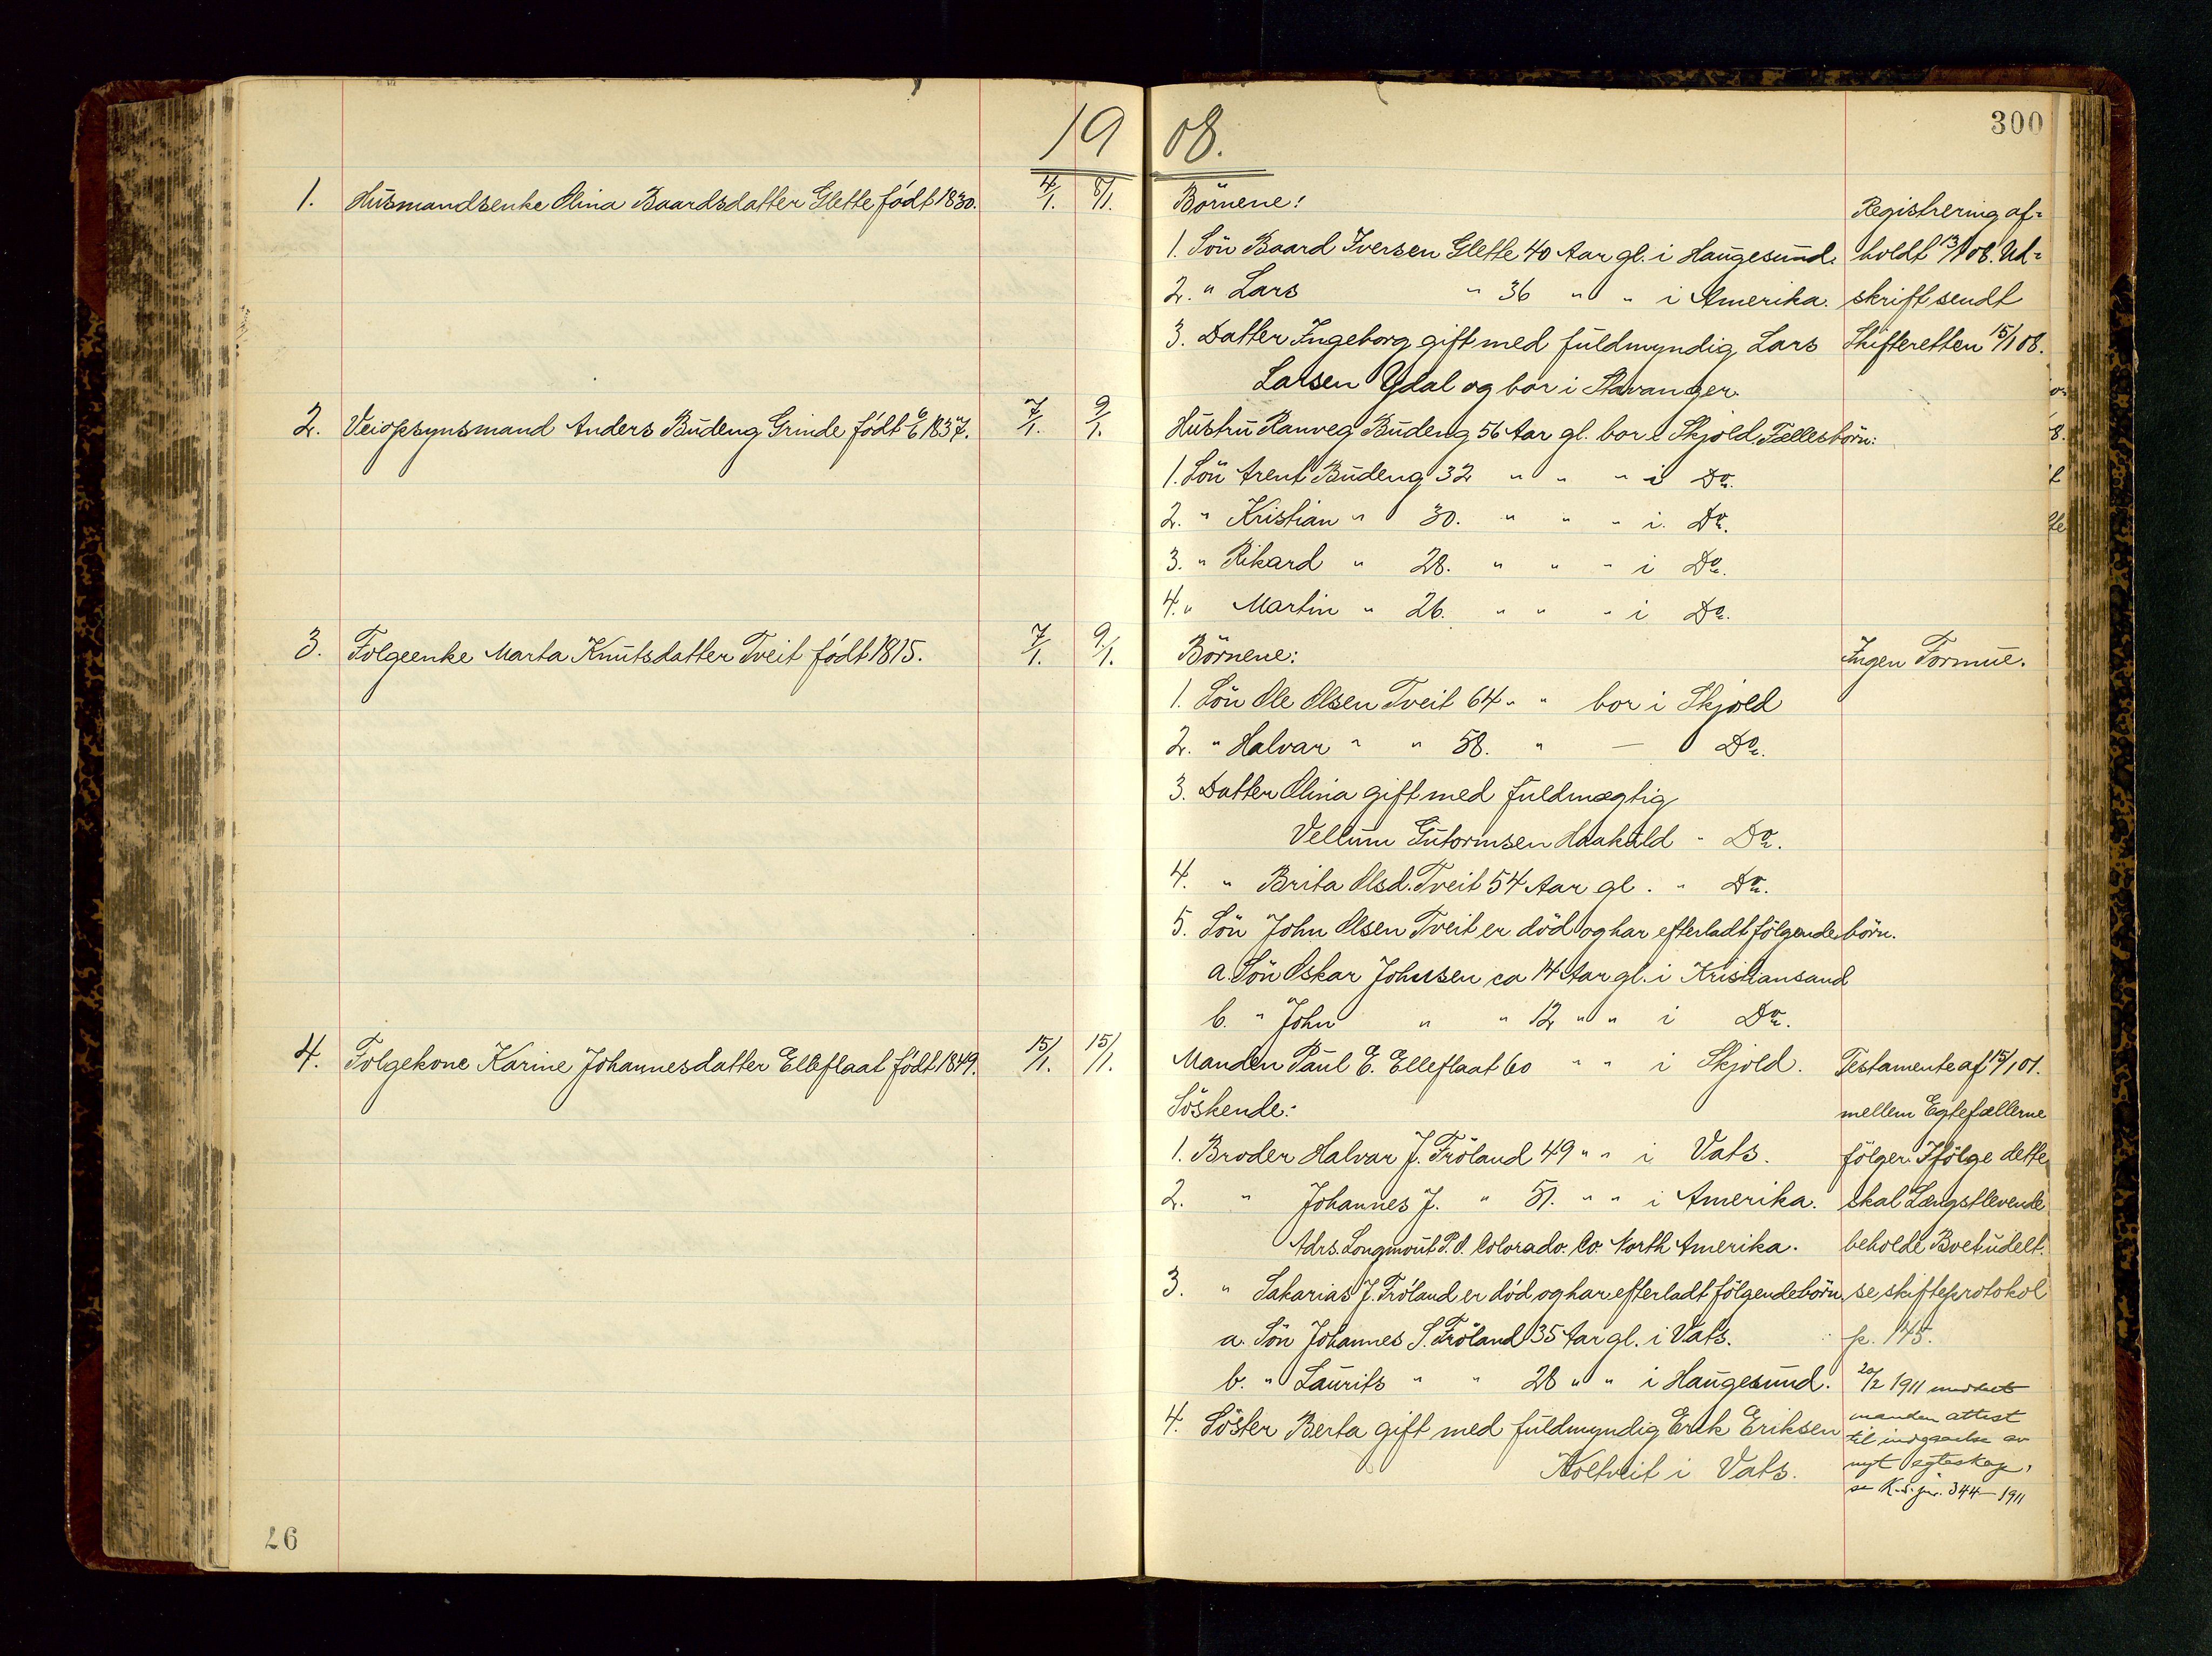 1908.
300
1. Husmandsenke Olina Baardsdatter Glette född 1830. 4/1. 8/1. Börnene:
1. Sön Baard Iversen Glette 40 Aar gl. i Haugesund.
2. " Lars " 36 " " i Amerika.
3. Datter Ingeborg gift med fuldmyndig Lars
Larsen Ydal og bor i Stavanger.
Registrering af-
holdt 13/1 08. Ud-
skrift sendt
Skifteretten 15/1 08.
2. Veiopsynsmand Anders Budeng Grinde född 1837. 7/1. 9/1. Hustru Ranveg Budeng 56 Aar gl. bor i Skjold Fællesbörn:
1. Sön Arent Budeng 32 " " " i Do.
2. " Kristian " 30. " " " i. Do.
3. " Rikard " 28. " " " i Do.
4. " Martin " 26. " " " i Do.
3. Folgeenke Marta Knutsdatter Tveit född 1815. 7/1. 9/1. Börnene:
1. Sön Ole Olsen Tveit 64 " " bor i Skjold
2. " Halvar " " 58. " — Do.
3. Datter Olina gift med fuldmægtig
Vellum Gutormsen Haakald " Do.
4. " Brita Olsd. Tveit 54 Aar gl. " Do.
5. Sön John Olsen Tveit er död og har efterladt fölgende börn.
a. Sön Oskar Johnsen ca 14 Aar gl. i Kristiansand
b. " John " " 12 " " i Do.
Ingen Formue.
4. Folgekone Karine Johannesdatter Elleflaat född 1849. 15/1. 15/1. Manden Paul E. Elleflaat 60 " " i Skjold.
Söskende:
1. Broder Halvar J. Fröland 49 " " i Vats.
2. " Johannes J. " 51. " " i Amerika.
Adrs. Longmout P.O. Colorado. Co. North Amerika.
3. " Sakarias J. Fröland er död og har efterladt fölgende börn
a. Sön Johannes S. Fröland 35 Aar gl. i Vats.
b. " Laurits " " 28 " " i Haugesund.
4. Söster Berta gift med fuldmyndig Erik Eriksen
Koltveit i Vats.
Testamente af 15/1 01.
mellem Egtefællerne
fölger. Ifölge dette
skal Længstlevende
beholde Boet udelt.
se skifteprotokol
p. 145.
20/2 1911 meddelt
manden attest
til indgaaelse av
nyt egteskap,
se K.s. jnr. 344–1911
26